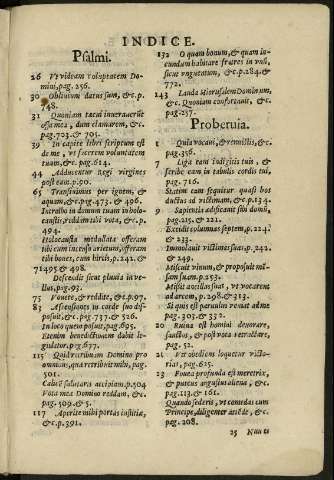 INDICE.
Psalmi.
26 Vt videam voluptatem Do-
mini, pag. 256.
30 Obliuioni datus sum, &c. p.
748.
31 Quoniam tacui inueterauerūt
ossa mea, dum clamarem, &c.
pag. 703. & 705.
39 In capite libri scriptum est
de me, vt facerem voluntatem
tuam, &c. pag. 614.
44 Adducentur regi virgines
post eam p. 90.
65 Transiuimus per ignem, &
aquam, &c. pag. 473. & 496.
Introibo in domum tuam in holo-
caustis, reddam tibi vota, &c. p.
494.
Holocausta medullata offeram
tibi cum incenso arietum, offeram
tibi boues, cum hircis, p. 242. &
71 495 & 498.
Descendit sicut pluuia in ve-
llus, pag. 93.
75 Vouete, & reddite, &c. p. 97.
83 Ascensiones in corde suo dis-
posuit, &c. pag. 737. & 526.
In loco quem posuit, pag. 695.
Etenim benedictionem dabit le-
gislator, pag. 677.
115 Quid retribuam Domino pro
omnibus, quæ retribuit mihi, pag.
501.
Calicē salutaris accipiam. p. 504
Vota mea Domino reddam, &c.
pag. 509. & 5
117 Aperite mihi portas iustitiæ,
& c. p. 391.
132 O quam bonum, & quam iu-
cundum habitare fratres in vnū,
sicut vnguentum, &c. p. 284. &
772.
147 Lauda Hierusalem Dominum,
&c. Quoniam confortauit, &c.
pag. 237.
Prouerbia.
1 Quia vocaui, & renuistis, &c.
pag. 356.
7 Liga eam in digitis tuis, &
scribe eam in tabulis cordis tui,
pag. 716.
Statim eam sequitur quasi bos
ductus ad victimam, &c. p. 134.
9 Sapientia ædificauit sibi domū,
pag. 215. & 221.
Excidit columnas septem, p. 224.
& 233.
Immolauit victimas suas, p. 242.
& 249.
Miscuit vinum, & proposuit mē-
sam suam. p. 253.
Misit ancillas suas, vt vocarent
ad arcem, p. 298. & 313.
Si quis est paruulus veniat ad me
pag. 303. & 332.
20 Ruina est homini deuorare,
sanctos, & post vota retractare,
pag. 52.
21 Vir obediens loquetur victo-
rias, pag. 625.
23 Fouea profunda est meretrix,
& puteus angustus aliena, &c.
pag. 113. & 161.
Quando sederis, vt comedas cum
Principe, diligenter attēde, &c.
pag. 208.
25 Nun ci